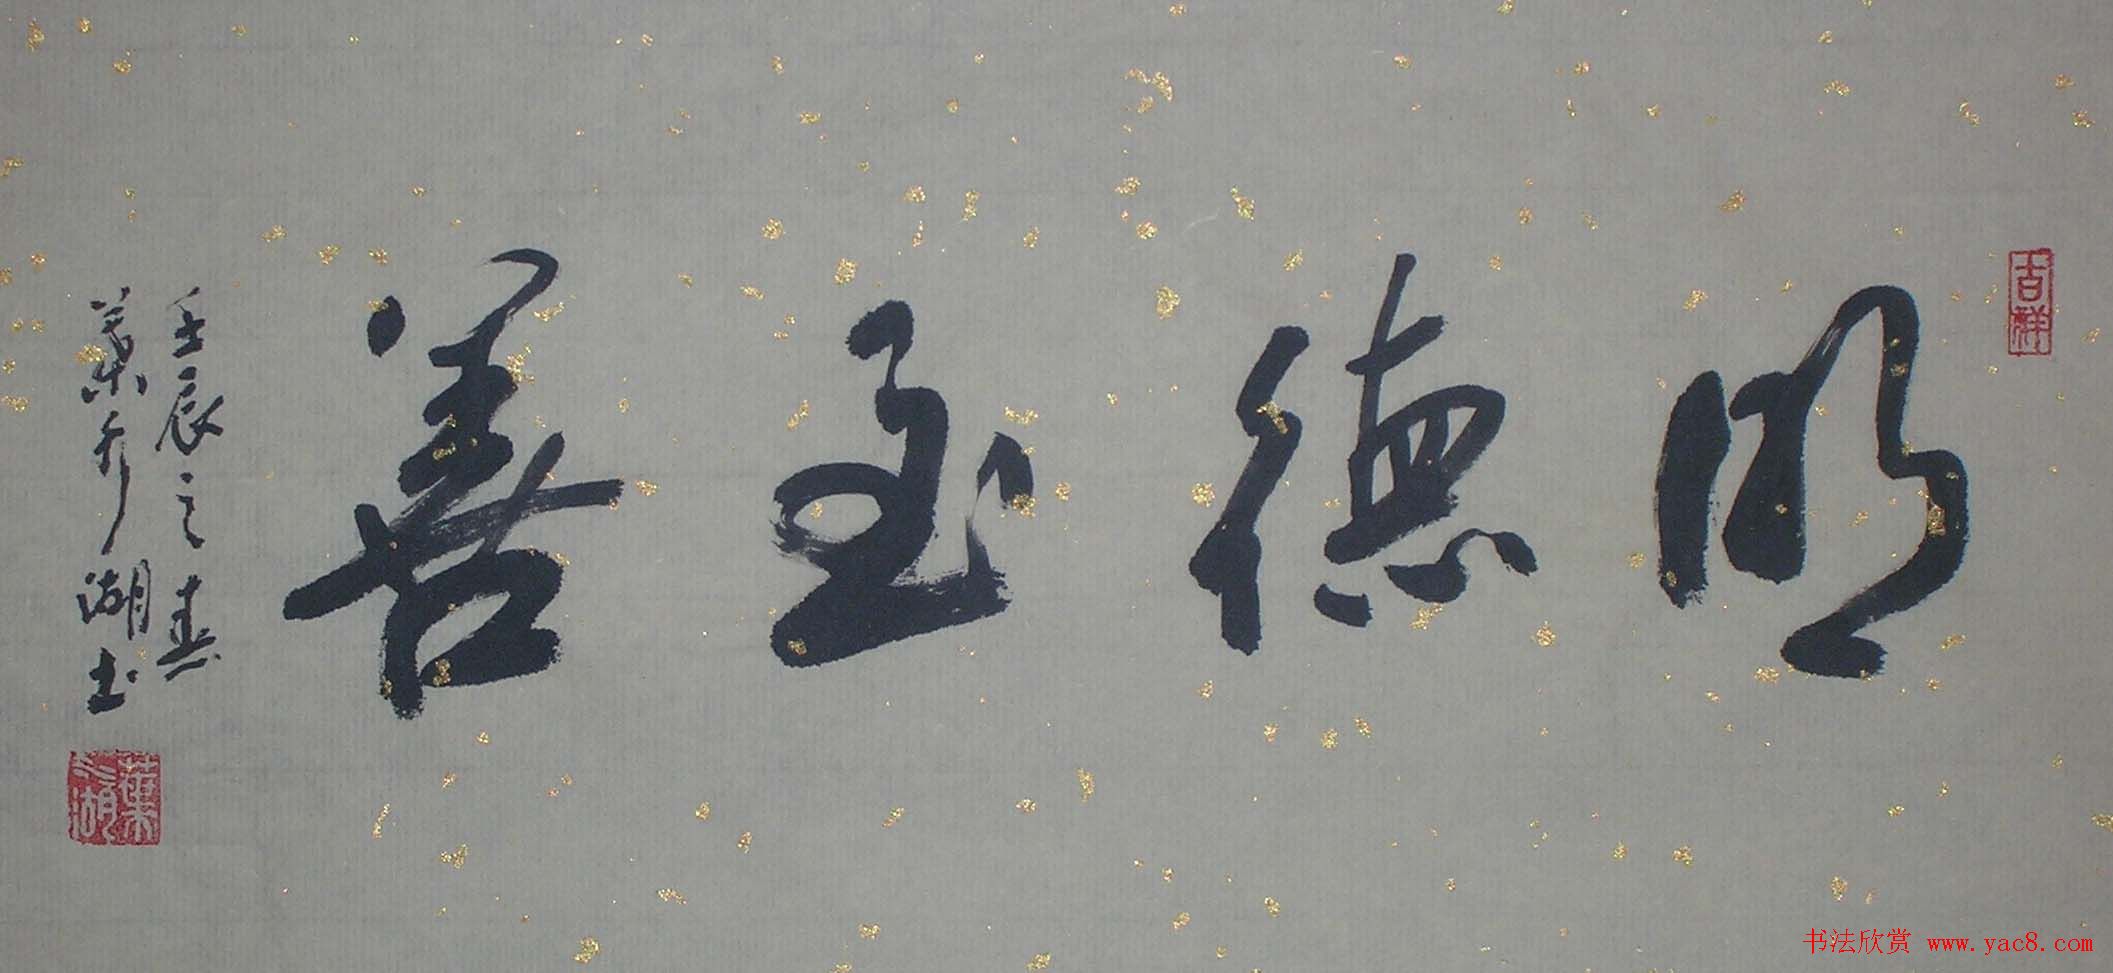 明德至善
吉祥
壬辰之春
葉介湖书
葉介湖
书法欣赏 www.yac8.com